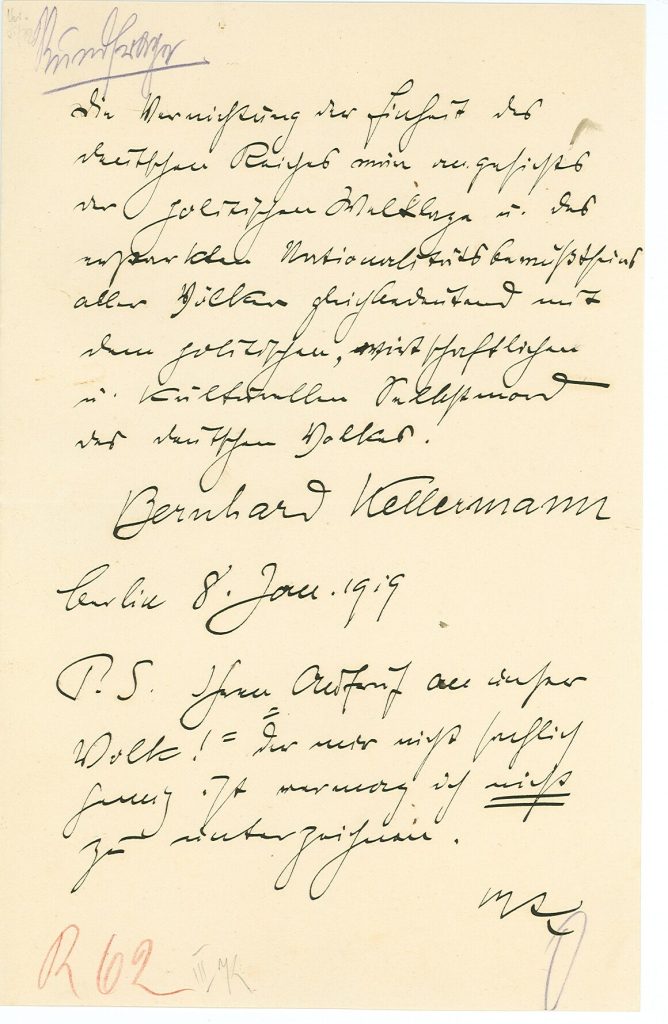 Rundfrage
Die Vernichtung der Einheit des
deutschen Reiches wäre angesichts
der politischen Weltlage u. des
erstarkten Nationalitätsbewußtseins
aller Völker gleichbedeutend mit
dem politischen, wirtschaftlichen
u. kulturellen Selbstmord
des deutschen Volkes.
Bernhard Kellermann
Berlin 8. Jan. 1919
P. S. Ihren Aufruf an unser
Volk! = der mir nicht sachlich
genug ist vermag ich nicht
zu unterzeichnen.
R 62 III